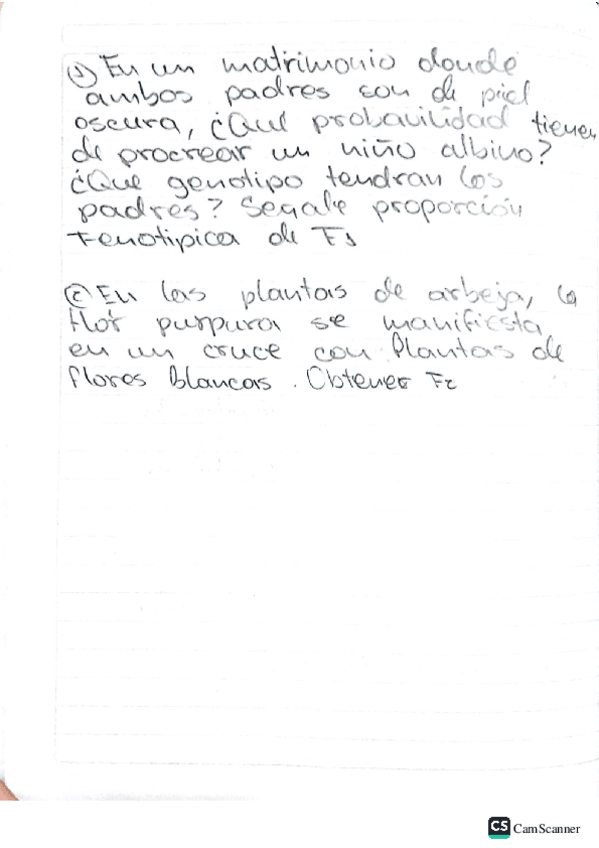 ① En un matrimonio donde
ambos padres son de piel
oscura, ¿Qué probavilidad tienen
de procrear un niño albino?
¿Que genotipo tendran los
padres? Señale proporción
Fenotipica de F1
② En las plantas de arbeja, la
flor purpura se manifiesta
en un cruce con Plantas de
flores Blancas. Obtener F2
CS CamScanner